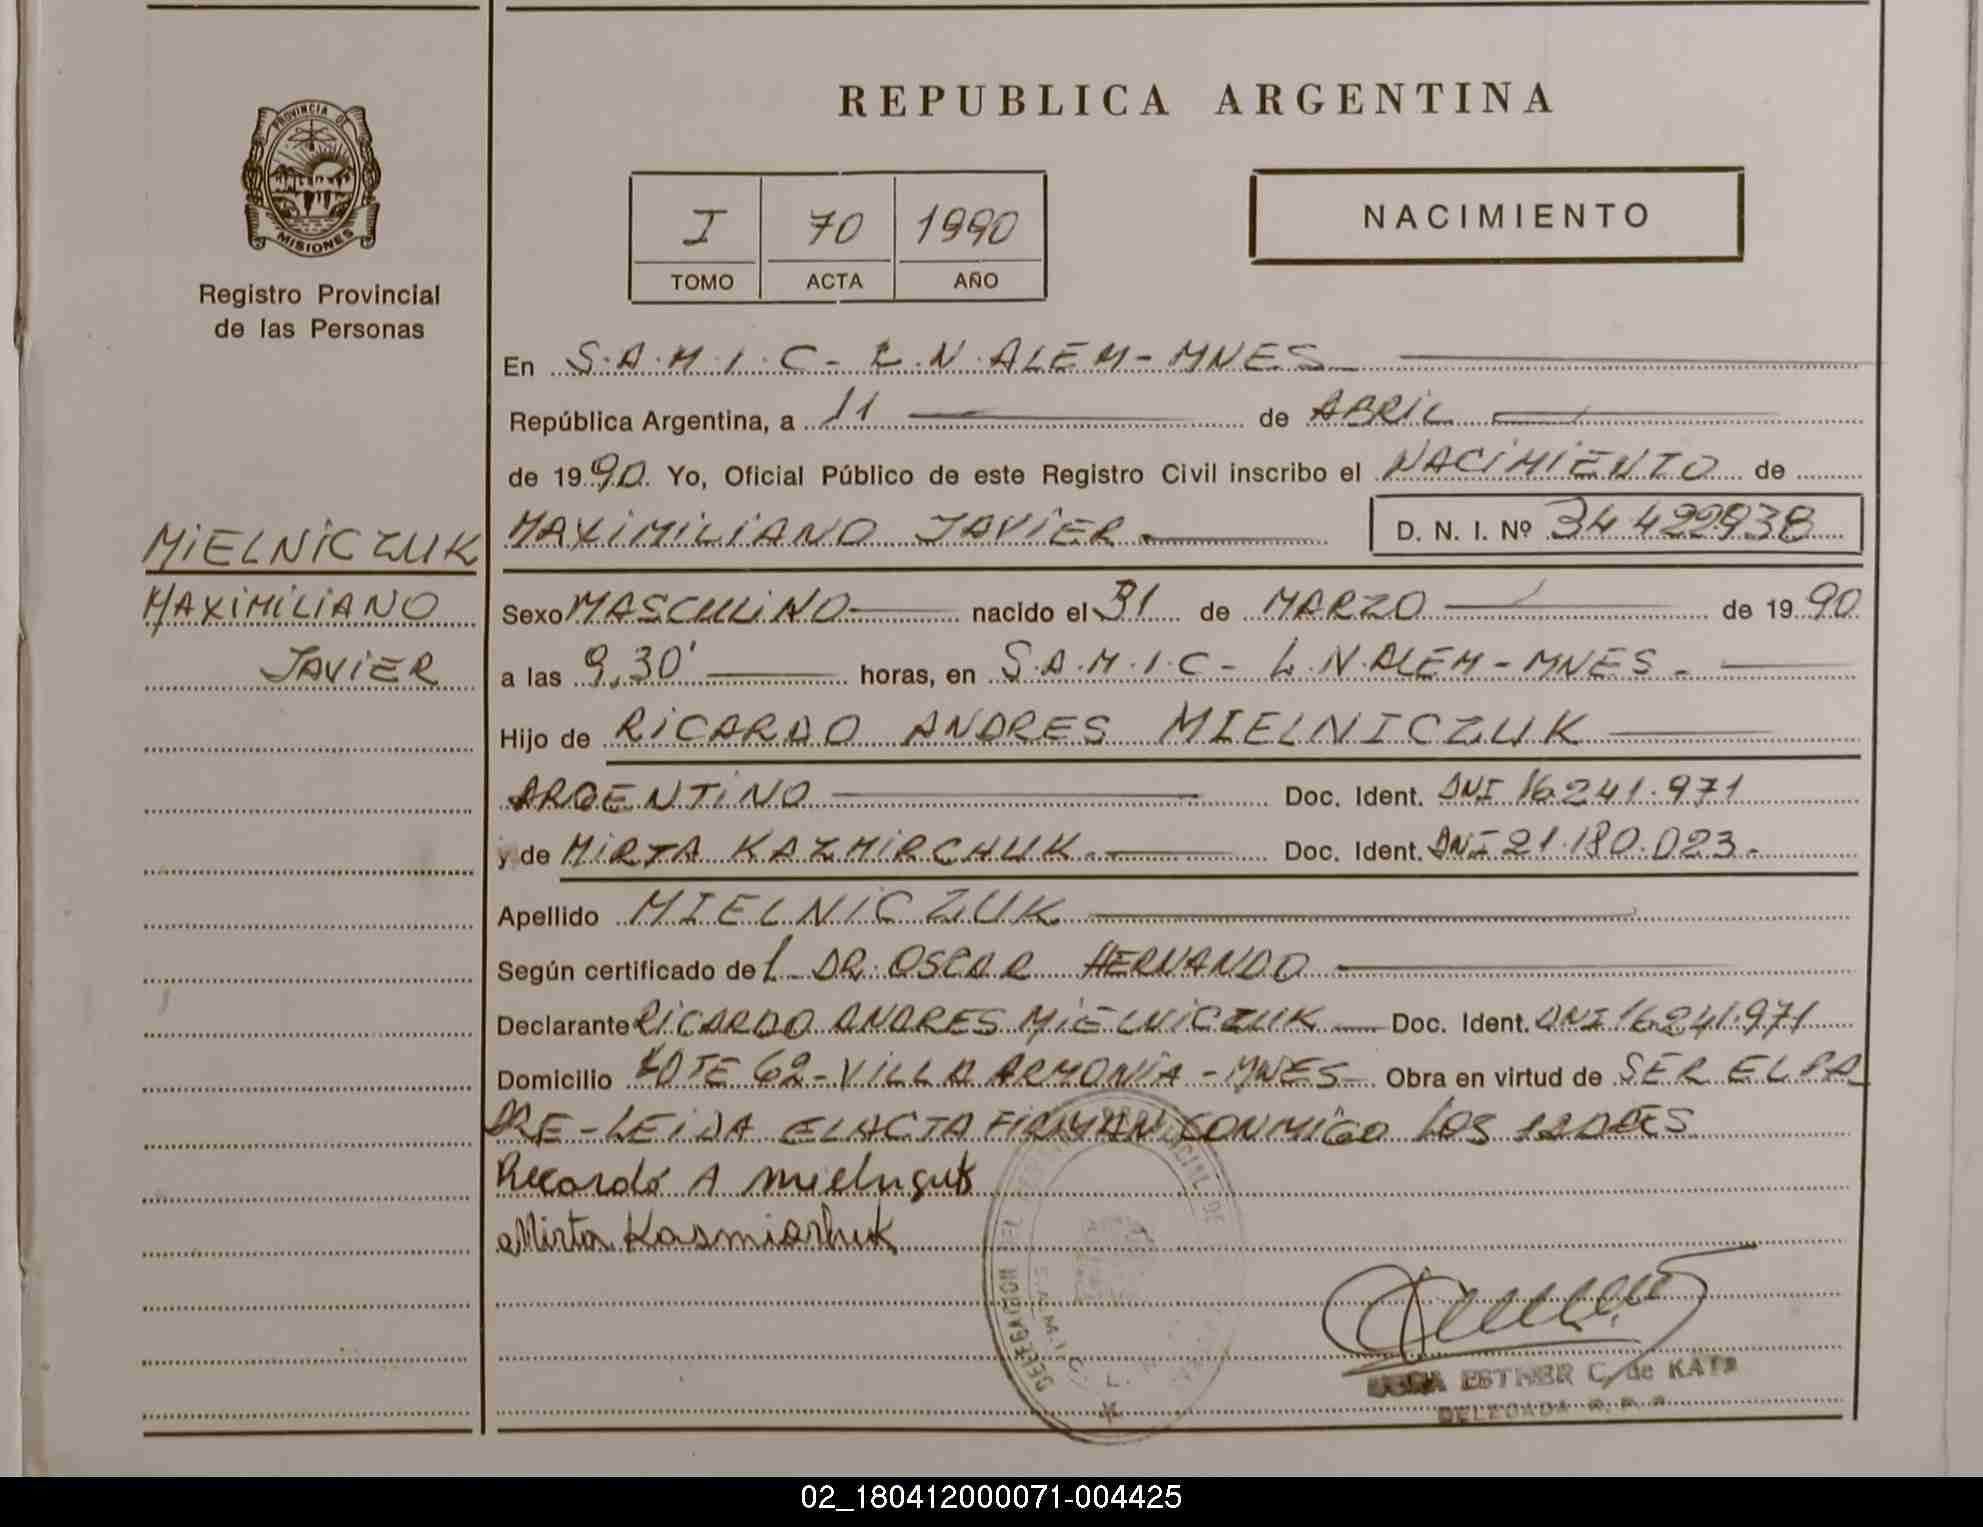 PROVINCIA DE
MISIONES
Registro Provincial
de las Personas
MIELNICZUK
MAXIMILIANO
JAVIER
REPUBLICA ARGENTINA
I 70 1990
TOMO ACTA AÑO
NACIMIENTO
En S.A.M.I.C- L.N.ALEM-MNES
República Argentina, a 11 de ABRIL
de 1990. Yo, Oficial Público de este Registro Civil inscribo el NACIMIENTO de
MAXIMILIANO JAVIER D. N. I. Nº 34422938
Sexo MASCULINO nacido el 31 de MARZO de 1990
a las 9,30' horas, en S.A.M.I.C- L.N.ALEM-MNES-
Hijo de RICARDO ANDRES MIELNICZUK
ARGENTINO Doc. Ident. DNI 16.241.971
y de MIRTA KAZMIRCHUK. Doc. Ident. DNI 21.180.023.
Apellido MIELNICZUK
Según certificado del DR. OSCAR HERNANDO
Declarante RICARDO ANDRES MIELNICZUK Doc. Ident. DNI 16.241.971
Domicilio LOTE 62-VILLA ARMONIA-MNES Obra en virtud de SER EL PA
DRE-LEIDA EL ACTA FIRMAN CONMIGO LOS PADRES
Ricardo A
Mirta Kasmiarhuk
DELEGACION DEL
S.A.M.I.C.
ESTHER C. de KATZ
DELEGADA R. P. P.
02_180412000071-004425